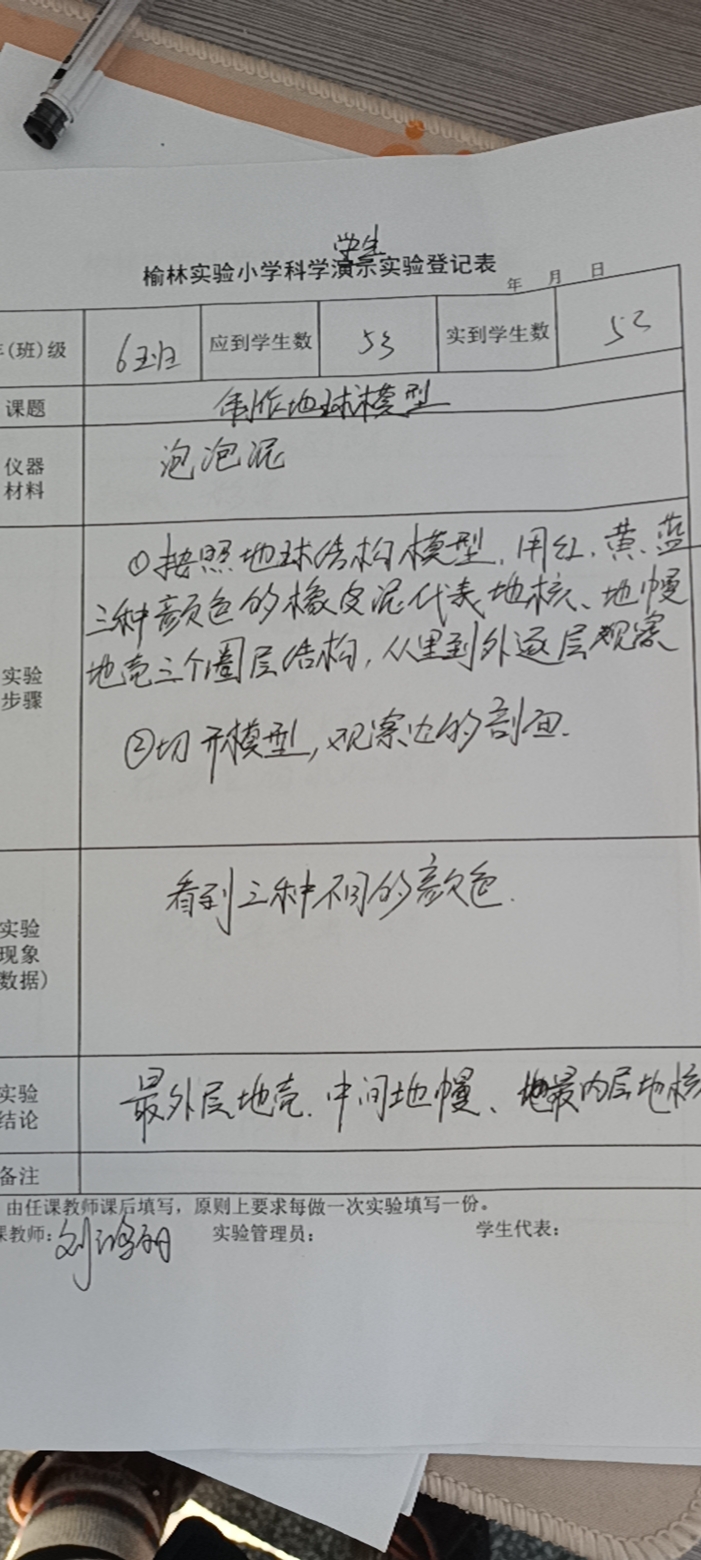 学生
榆林实验小学科学演示实验登记表
年 月 日
(班)级 6班 应到学生数 53 实到学生数 52
课题 制作地球模型
仪器 材料 泡泡泥
实验 步骤
①按照地球结构模型,用红、黄、蓝
三种颜色的橡皮泥代表地核、地幔
地壳三个圈层结构,从里到外逐层观察
②切开模型,观察边的剖面.
实验 现象 数据)
看到三种不同的颜色.
实验 结论 最外层地壳.中间地幔、最内层地核
备注
由任课教师课后填写,原则上要求每做一次实验填写一份。
课教师: 刘 实验管理员: 学生代表: